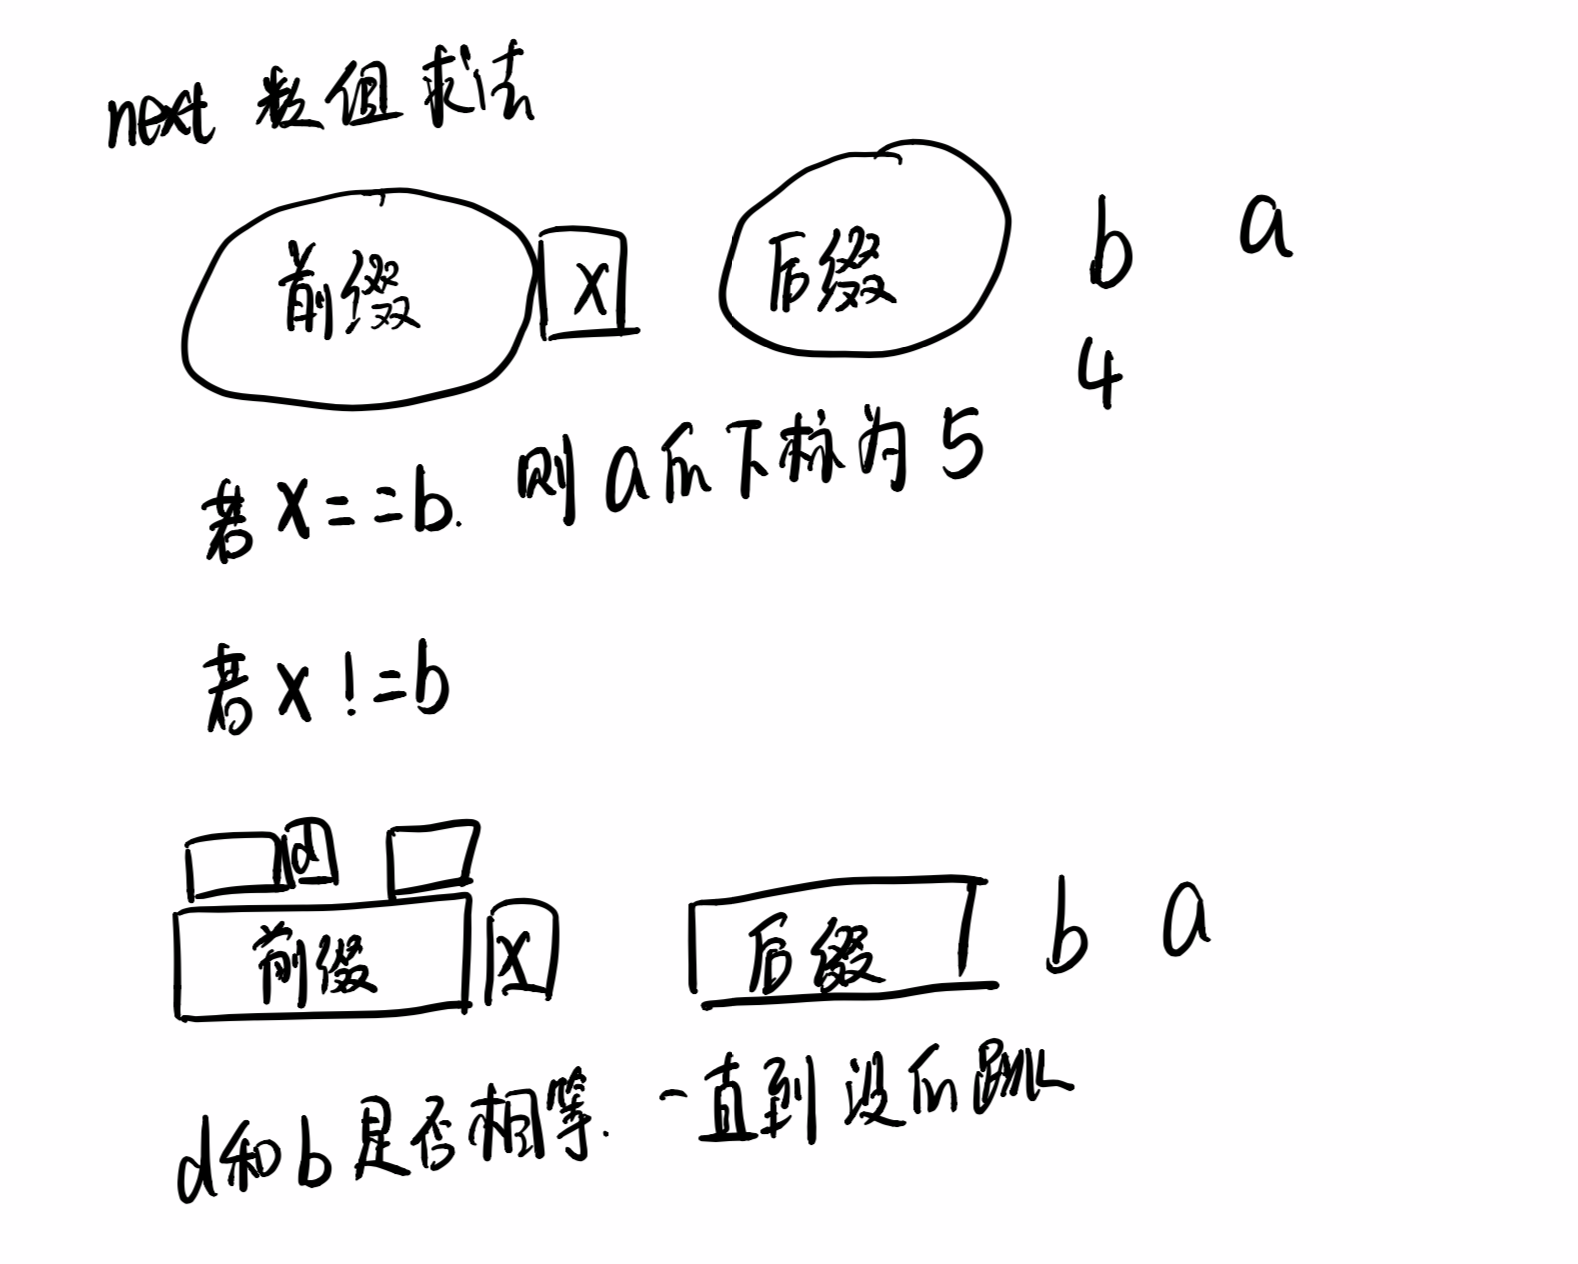 next 数组求法
前缀 X 后缀 b a
4
若 X==b. 则 a 的下标为 5
若 X !=b
d
前缀 X 后缀 b a
d和b是否相等. 一直到没的跳